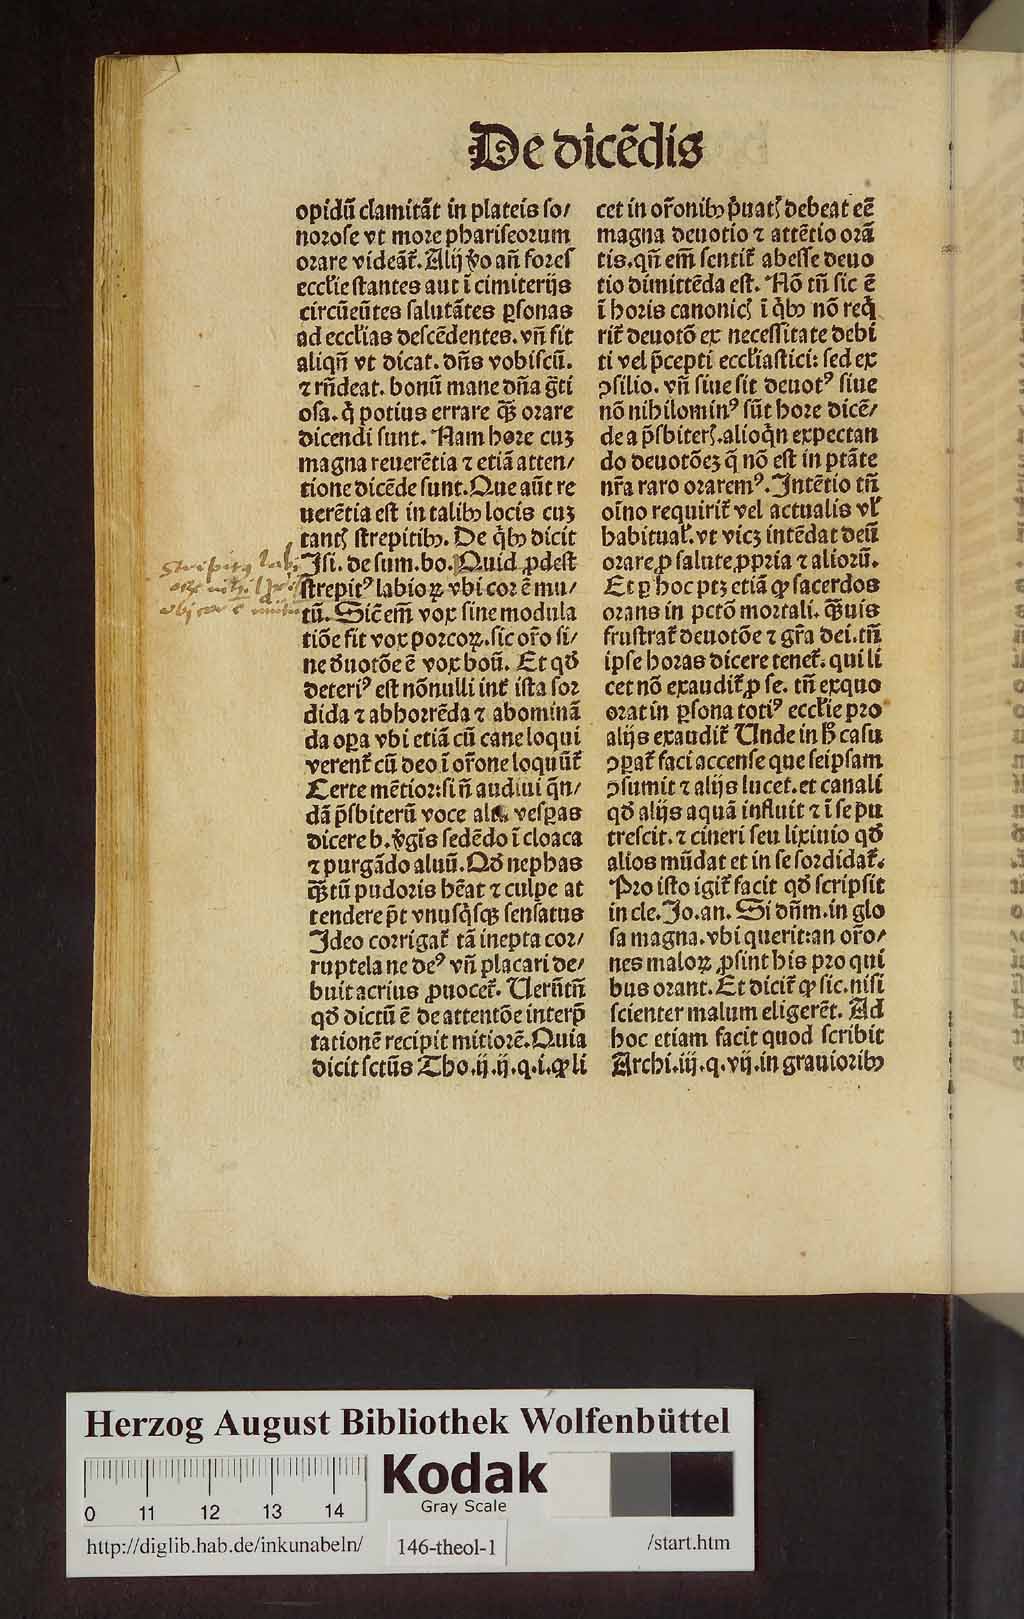 De dicēdis
opidū clamitāt in plateis so/
norose vt more phariseorum
orare videāt᷑. Alij ꝟo an̄ fores
eccl'ie stantes aut ī cimiterijs
circūeūtes salutātes ꝑsonas
ad eccl'ias descēdentes. vn̄ fit
aliqn̄ vt dicat. dn̄s vobiscū.
⁊ rn̄deat. bonū mane dn̄a ḡti
osa. q̇ potius errare qꝫ̄ orare
dicendi sunt. Nam hore cuꝫ
magna reuerētia ⁊ etiā atten/
tione dicēde sunt. Que aūt re
uerētia est in talibꝰ locis cuꝫ
tantꝭ strepitibꝰ. De q̇bꝰ dicit
Isi. de sum. bo. Quid ꝓdest
strepitꝰ labioꝝ vbi cor ē mu/
tū. Sic̄ em̄ vox sine modula
tiōe fit vox porcoꝝ. sic or̄o si/
ne d̄uotōe ē vox boū. Et qd̄
deteriꝰ est nōnulli int᷑ ista sor
dida ⁊ abhorrēda ⁊ abominā
da oꝑa vbi etiā cū cane loqui
verent᷑ cū deo ī or̄one loquūt᷑
Certe mētior: si n̄ audiui q̄n/
dā p̄sbiterū voce alta vesꝑas
dicere b. ꝟgīs sedēdo ī cloaca
⁊ purgādo aluū. Qd̄ nephas
qꝫ̄tū pudoris hēat ⁊ culpe at
tendere p̄t vnusq̇sqꝫ sensatus
Ideo corrigat᷑ tā inepta cor/
ruptela ne deꝰ vn̄ placari de/
buit acrius ꝓuocet᷑. Uerūtn̄
qd̄ dictū ē de attentōe interp̄
tationē recipit mitiorē. Quia
dicit sct̄us Tho. ij. ij. q. i. ꝙ li
cet in or̄onibꝰ ṗuatꝭ debeat eē
magna deuotio ⁊ attētio orā
tis. qn̄ em̄ sentit᷑ abesse deuo
tio dimittēda est. Nō tn̄ sic ē
ī horis canonicꝭ ī q̇bꝰ nō req̇
rit᷑ deuotō ex necessitate debi
ti vel p̄cepti eccl'iastici: sed ex
ꝯsilio. vn̄ siue sit deuotꝰ siue
nō nihilominꝰ sūt hore dicē/
de a p̄sbiterꝭ. alioq̇n expectan
do deuotōeꝫ q̄ nō est in ptāte
nr̄a raro oraremꝰ. Intētio tn̄
oīno requirit᷑ vel actualis vl'
habitual'. vt vicꝫ intēdat deū
orare ꝓ salute ꝓpria ⁊ alioꝝ.
Et ꝑ hoc ptꝫ etiā ꝙ sacerdos
orans in pctō mortali. qꝫ̄uis
frustrat᷑ deuotōe ⁊ gr̄a dei. tn̄
ipse horas dicere tenet᷑. qui li
cet nō exaudit᷑ ꝓ se. tn̄ exquo
orat in ꝑsona totiꝰ eccl'ie pro
alijs exaudit᷑ Unde in h̄ casu
ꝯꝑat᷑ faci accense que seipsam
ꝯsumit ⁊ alijs lucet. et canali
qd̄ alijs aquā influit ⁊ ī se pu
trescit. ⁊ cineri seu lixiuio qd̄
alios mūdat et in se sordidat᷑.
Pro isto igit᷑ facit qd̄ scripsit
in cle. Jo. an. Si dn̄m. in glo
sa magna. vbi querit: an or̄o/
nes maloꝝ ꝓsint his pro qui
bus orant. Et dicit᷑ ꝙ sic. nisi
scienter malum eligerēt. Ad
hoc etiam facit quod scribit
Archi. iij. q. vij. in grauioribꝰ
Strepitꝰ labi
vbi cor ē mutū
Herzog August Bibliothek Wolfenbüttel
0 11 12 13 14
Kodak
Gray Scale
http://diglib.hab.de/inkunabeln/ 146-theol-1 /start.htm